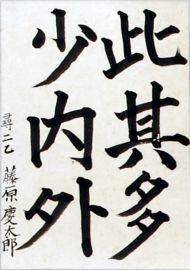 此其多
少内外
尋二乙 藤原慶太郎